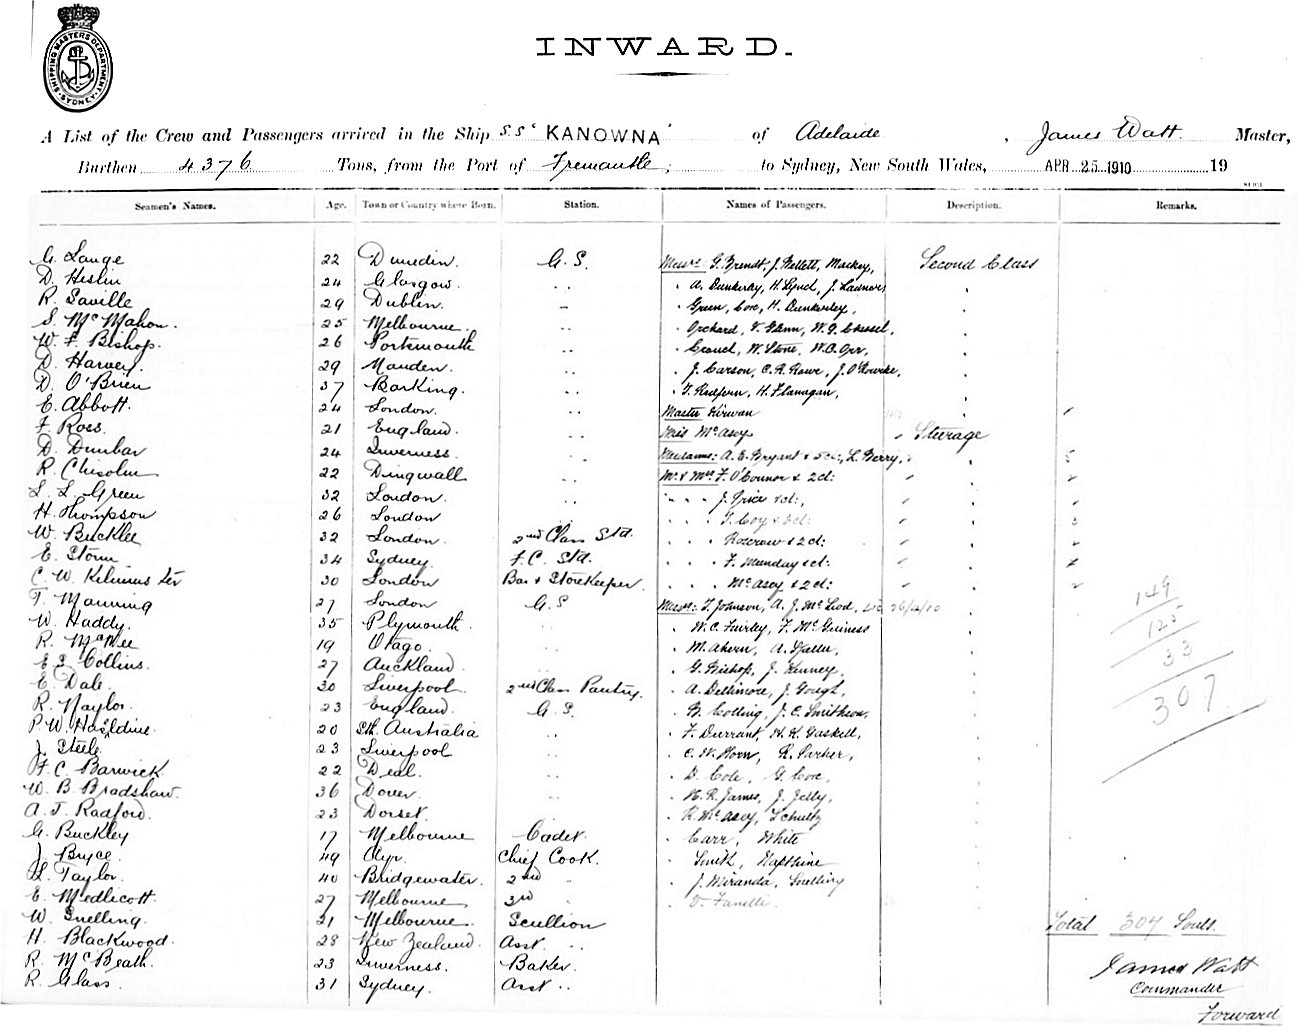 SHIPPING MASTERS DEPARTMENT. SYDNEY.
INWARD.
A List of the Crew and Passengers arrived in the Ship S.S. "KANOWNA" of Adelaide, James Watt Master,
Burthen 4376 Tons, from the Port of Fremantle, to Sydney, New South Wales, APR 25 1910 19
Seamen's Names. Age. Town or Country where Born. Station. Names of Passengers. Description. Remarks.
G. Lange 22 Dunedin. G.S. Messrs: G. Brendt, J. Mackay, Second Class
D. Heslin 24 Glasgow. " " " A. Dunkerley, H. Lynch, J. "
R. Saville 29 Dublin. " " Green, Coxe, H. Dunkerley, "
S. McMahon. 25 Melbourne. " " " Orchard, V. Glenn, W.G. "
W. F. Bishop. 26 Portsmouth " " " Crouch, W. Stone, W.O. Orr, "
D. Harvey. 29 " " " J. Carson, C.R. Rowe, J. O'Rourke, "
D. O'Brien 37 Barking. " " " T. Redfern, H. Flanagan, "
E. Abbott. 24 London. " " Master Kirwan "
F. Ross. 21 England. " " Miss McAsey " Steerage
D. Dunbar 24 Inverness. " " Mesdames: A. E. Bryant & 5 ch:, L. Berry,
R. Chisolm 22 Dingwall " " Mr. & Mrs. F. O'Connor & 2 ch:
L. L. Green 32 London. " " " " " J. Price & ch:,
H. Thompson 26 London " " " " " T. Coy & ch:
W. Bucklee 32 London. 2nd Class Std. " " " Roscrow & 2 ch:
E. Storm 34 Sydney. F.C. Std. " " " F. Munday & ch:
C. W. 30 London Bar & Storekeeper. " " " McAsey & 2 ch:
T. Manning 27 London G.S Messrs: T. Johnson, A. J. McLeod, 26/4/10 149
W. Haddy. 35 Plymouth. " " " W. C. Fairley, F. McGuiness 125
R. McNee 19 Otago. " " " M. Ahern, A. 33
E. S. Collins. 27 Auckland. " " " G. Bishop, J. Kenney,
E. Dale. 30 Liverpool. 2nd Class Pantry. " A. Dellimore, J. Gough, 307
R. Naylor. 23 England. G.S. " B. Colling, J. C. Smithson,
P. W. Haseldine. 20 Sth. Australia " " " F. Durrant, H. K. Gaskell,
J. Steele 23 Liverpool " " " C. W. Horn, R. Parker,
F. C. Barwick 22 Deal. " " " D. Cole, G. Coxe,
W. B. Bradshaw. 36 Dover. " " " H. R. James, J. Jelly,
A. J. Radford. 23 Dorset. " R. McAsey, Schultz
G. Buckley 17 Melbourne Cadet. " Carr, White
J. Bryce. 49 Ayr. Chief Cook. " Smith, Napthine
L. Taylor. 40 Bridgewater. 2nd " " J. Miranda, Snelling
E. Medlicott. 27 Melbourne 3rd " " V. Fanelli.
W. Snelling. 21 Melbourne. Scullion Total 307 Souls.
H. Blackwood. 28 New Zealand. Asst. " "
R. McBeath. 23 Inverness. Baker. James Watt
R. Glass. 31 Sydney. Asst " " Commander
Forward